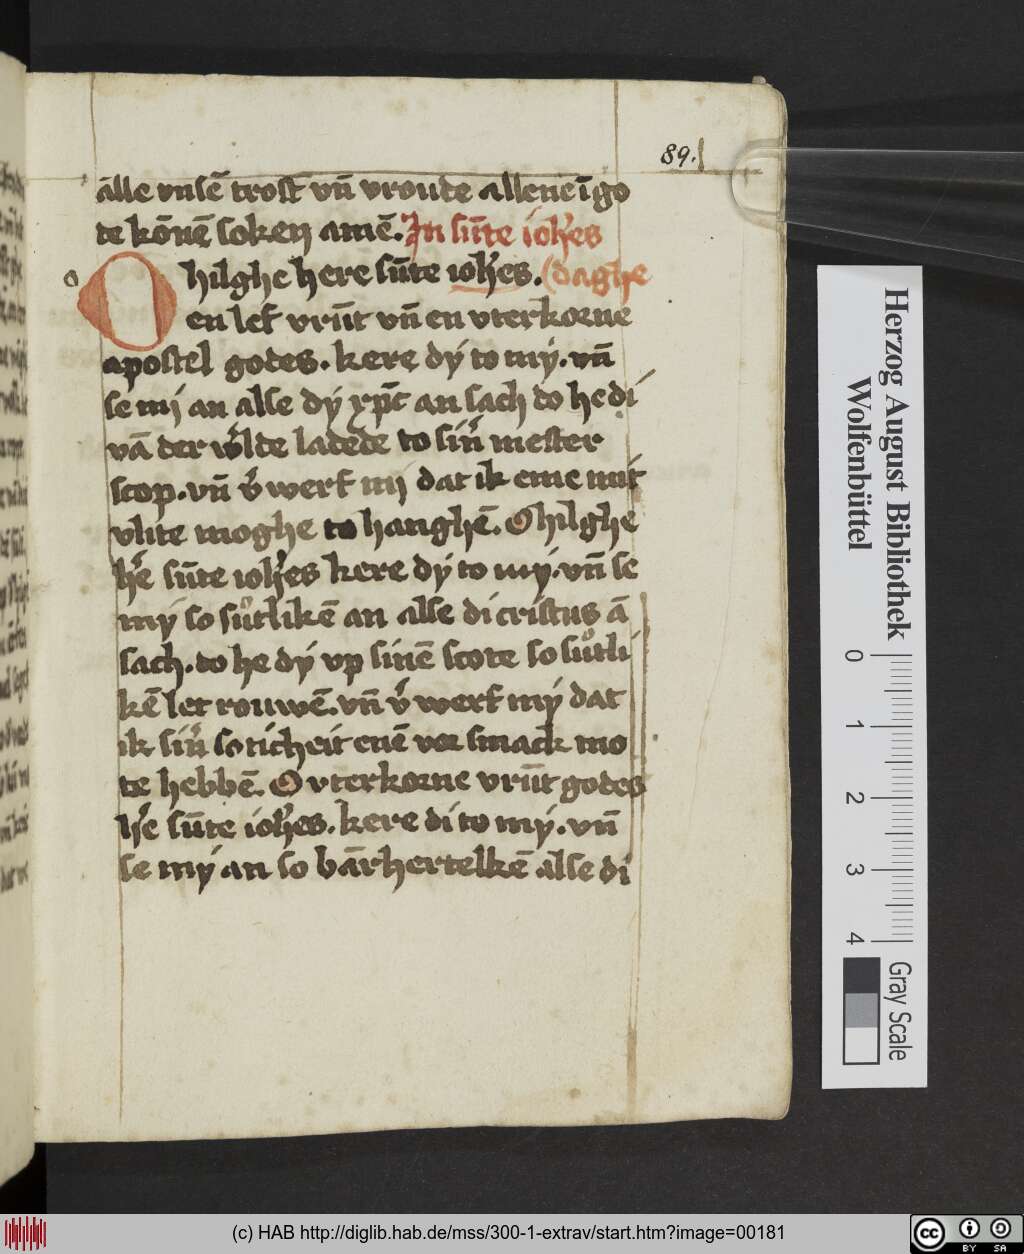 89.
alle vnsē trost vn̄ vroude allene ī go
te kōnē soken amē. In sūte ioh̄es
O hilghe here sūte ioh̄es. (daghe
en lef vrūt vn̄ en vterkorne
apostel godes. kere dy to my. vn̄
se mi an alse dy xp̄c an sach do he di
vā der w̄lde ladede to sin̄ mester
scop. vn̄ v̄werf mi dat ik eme mit
vlite moghe to hanghē. O hilghe
h̄e sūte ioh̄es kere dy to my. vn̄ se
my so sůtlikē an alse di cristus ā
sach. do he dy vp sinē scote so sůtli
kē let rouwē. vn̄ v̄werf my dat
ik sin̄ soticheit enē vor smack mo
te hebbē. O vterkorne vrūt godes
h̄e sūte ioh̄es. kere di to my. vn̄
se my an so bārhertelkē alse di
Herzog August Bibliothek
Wolfenbüttel
0 1 2 3 4
Gray Scale
(c) HAB http://diglib.hab.de/mss/300-1-extrav/start.htm?image=00181
cc BY SA